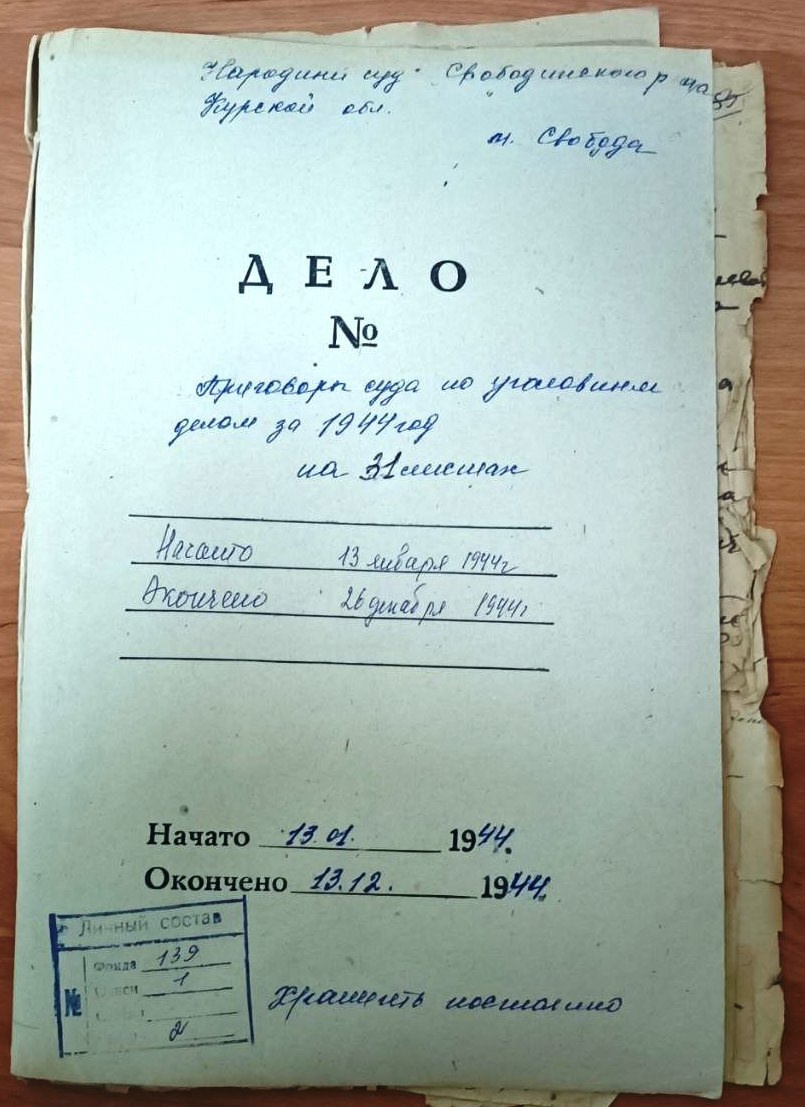 Народный суд Свободинского р-на
Курской обл.
м. Свобода
ДЕЛО
№
Приговоры суда по уголовным
делам за 1944 год
на 31 листах
Начато 13 января 1944г
Окончено 26 декабря 1944г
Начато 13.01. 1944.
Окончено 13.12. 1944.
Личный состав
Фонда 139
№ Описи 1
2
Хранить постоянно